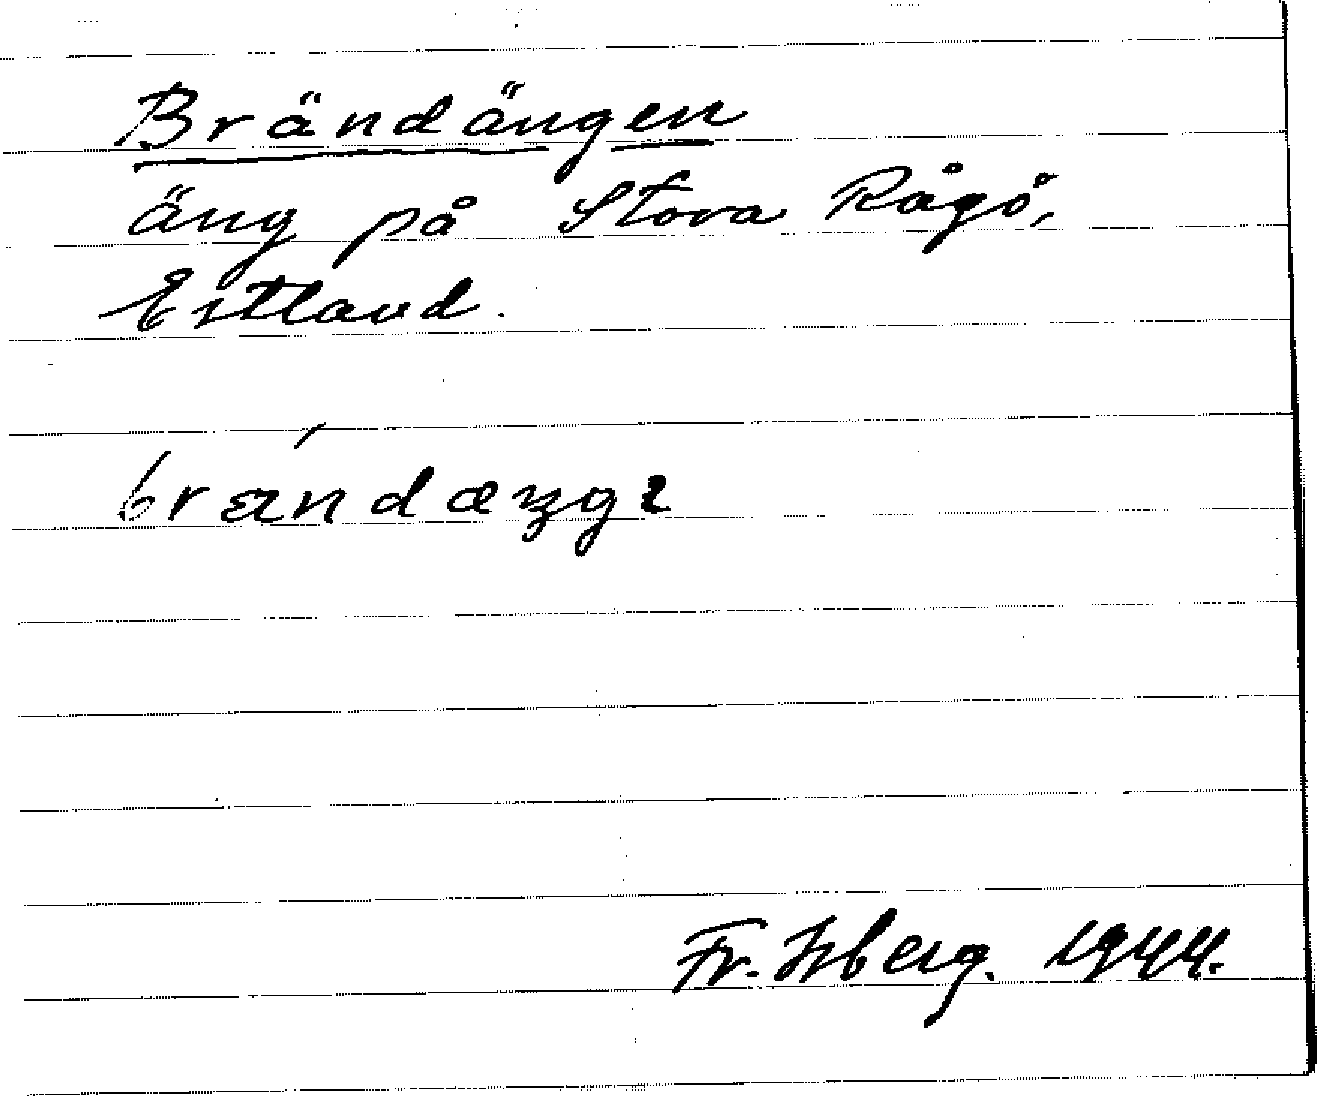 Brändängen
äng på Stora Rågö,
Estland.
brǽndæŋgɩ
Fr. Isberg. 1944.